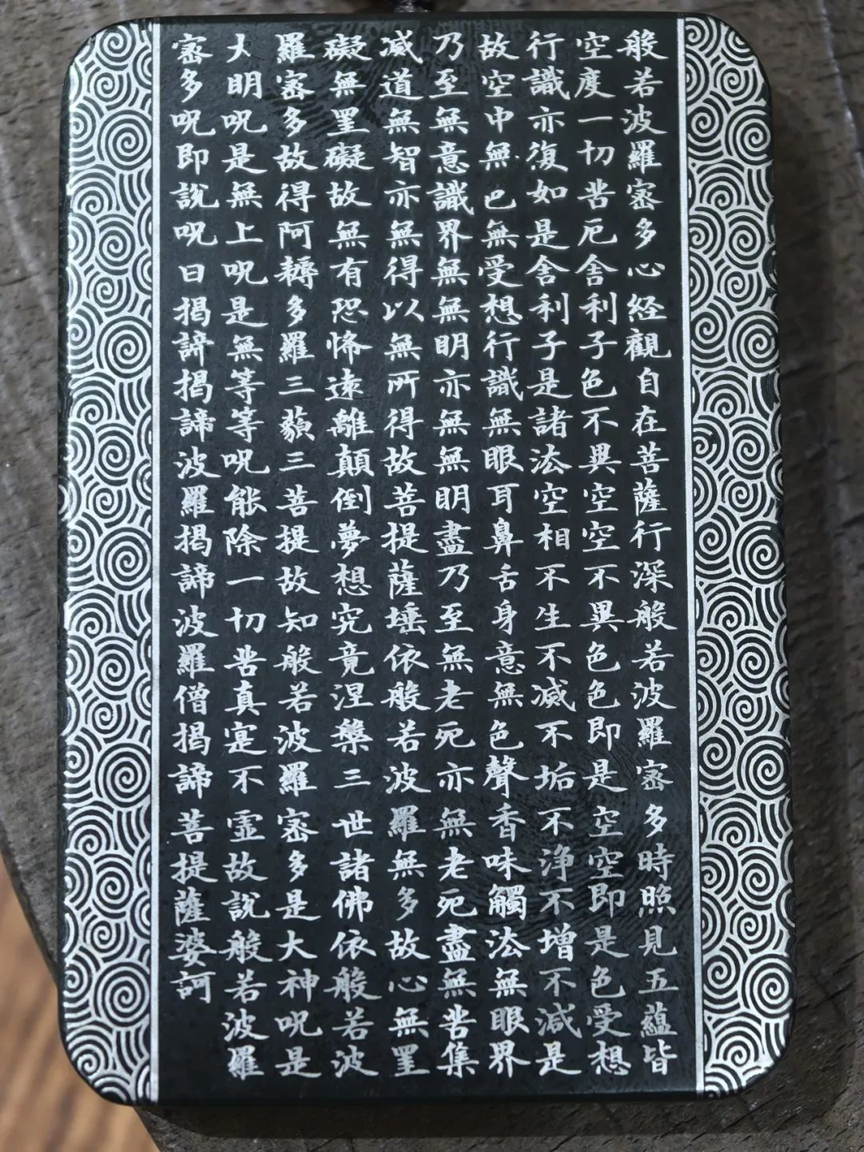 般若波羅蜜多心経觀自在菩薩行深般若波羅蜜多時照見五蘊皆
空度一切苦厄舍利子色不異空空不異色色即是空空即是色受想
行識亦復如是舍利子是諸法空相不生不滅不垢不淨不增不減是
故空中無色無受想行識無眼耳鼻舌身意無色聲香味觸法無眼界
乃至無意識界無無明亦無無明盡乃至無老死亦無老死盡無苦集
滅道無智亦無得以無所得故菩提薩埵依般若波羅無多故心無罣
礙無罣礙故無有恐怖遠離顛倒夢想究竟涅槃三世諸佛依般若波
羅蜜多故得阿耨多羅三藐三菩提故知般若波羅蜜多是大神呪是
大明呪是無上呪是無等等呪能除一切苦真寔不虛故說般若波羅
蜜多呪即說呪曰揭諦揭諦波羅揭諦波羅僧揭諦菩提薩婆訶